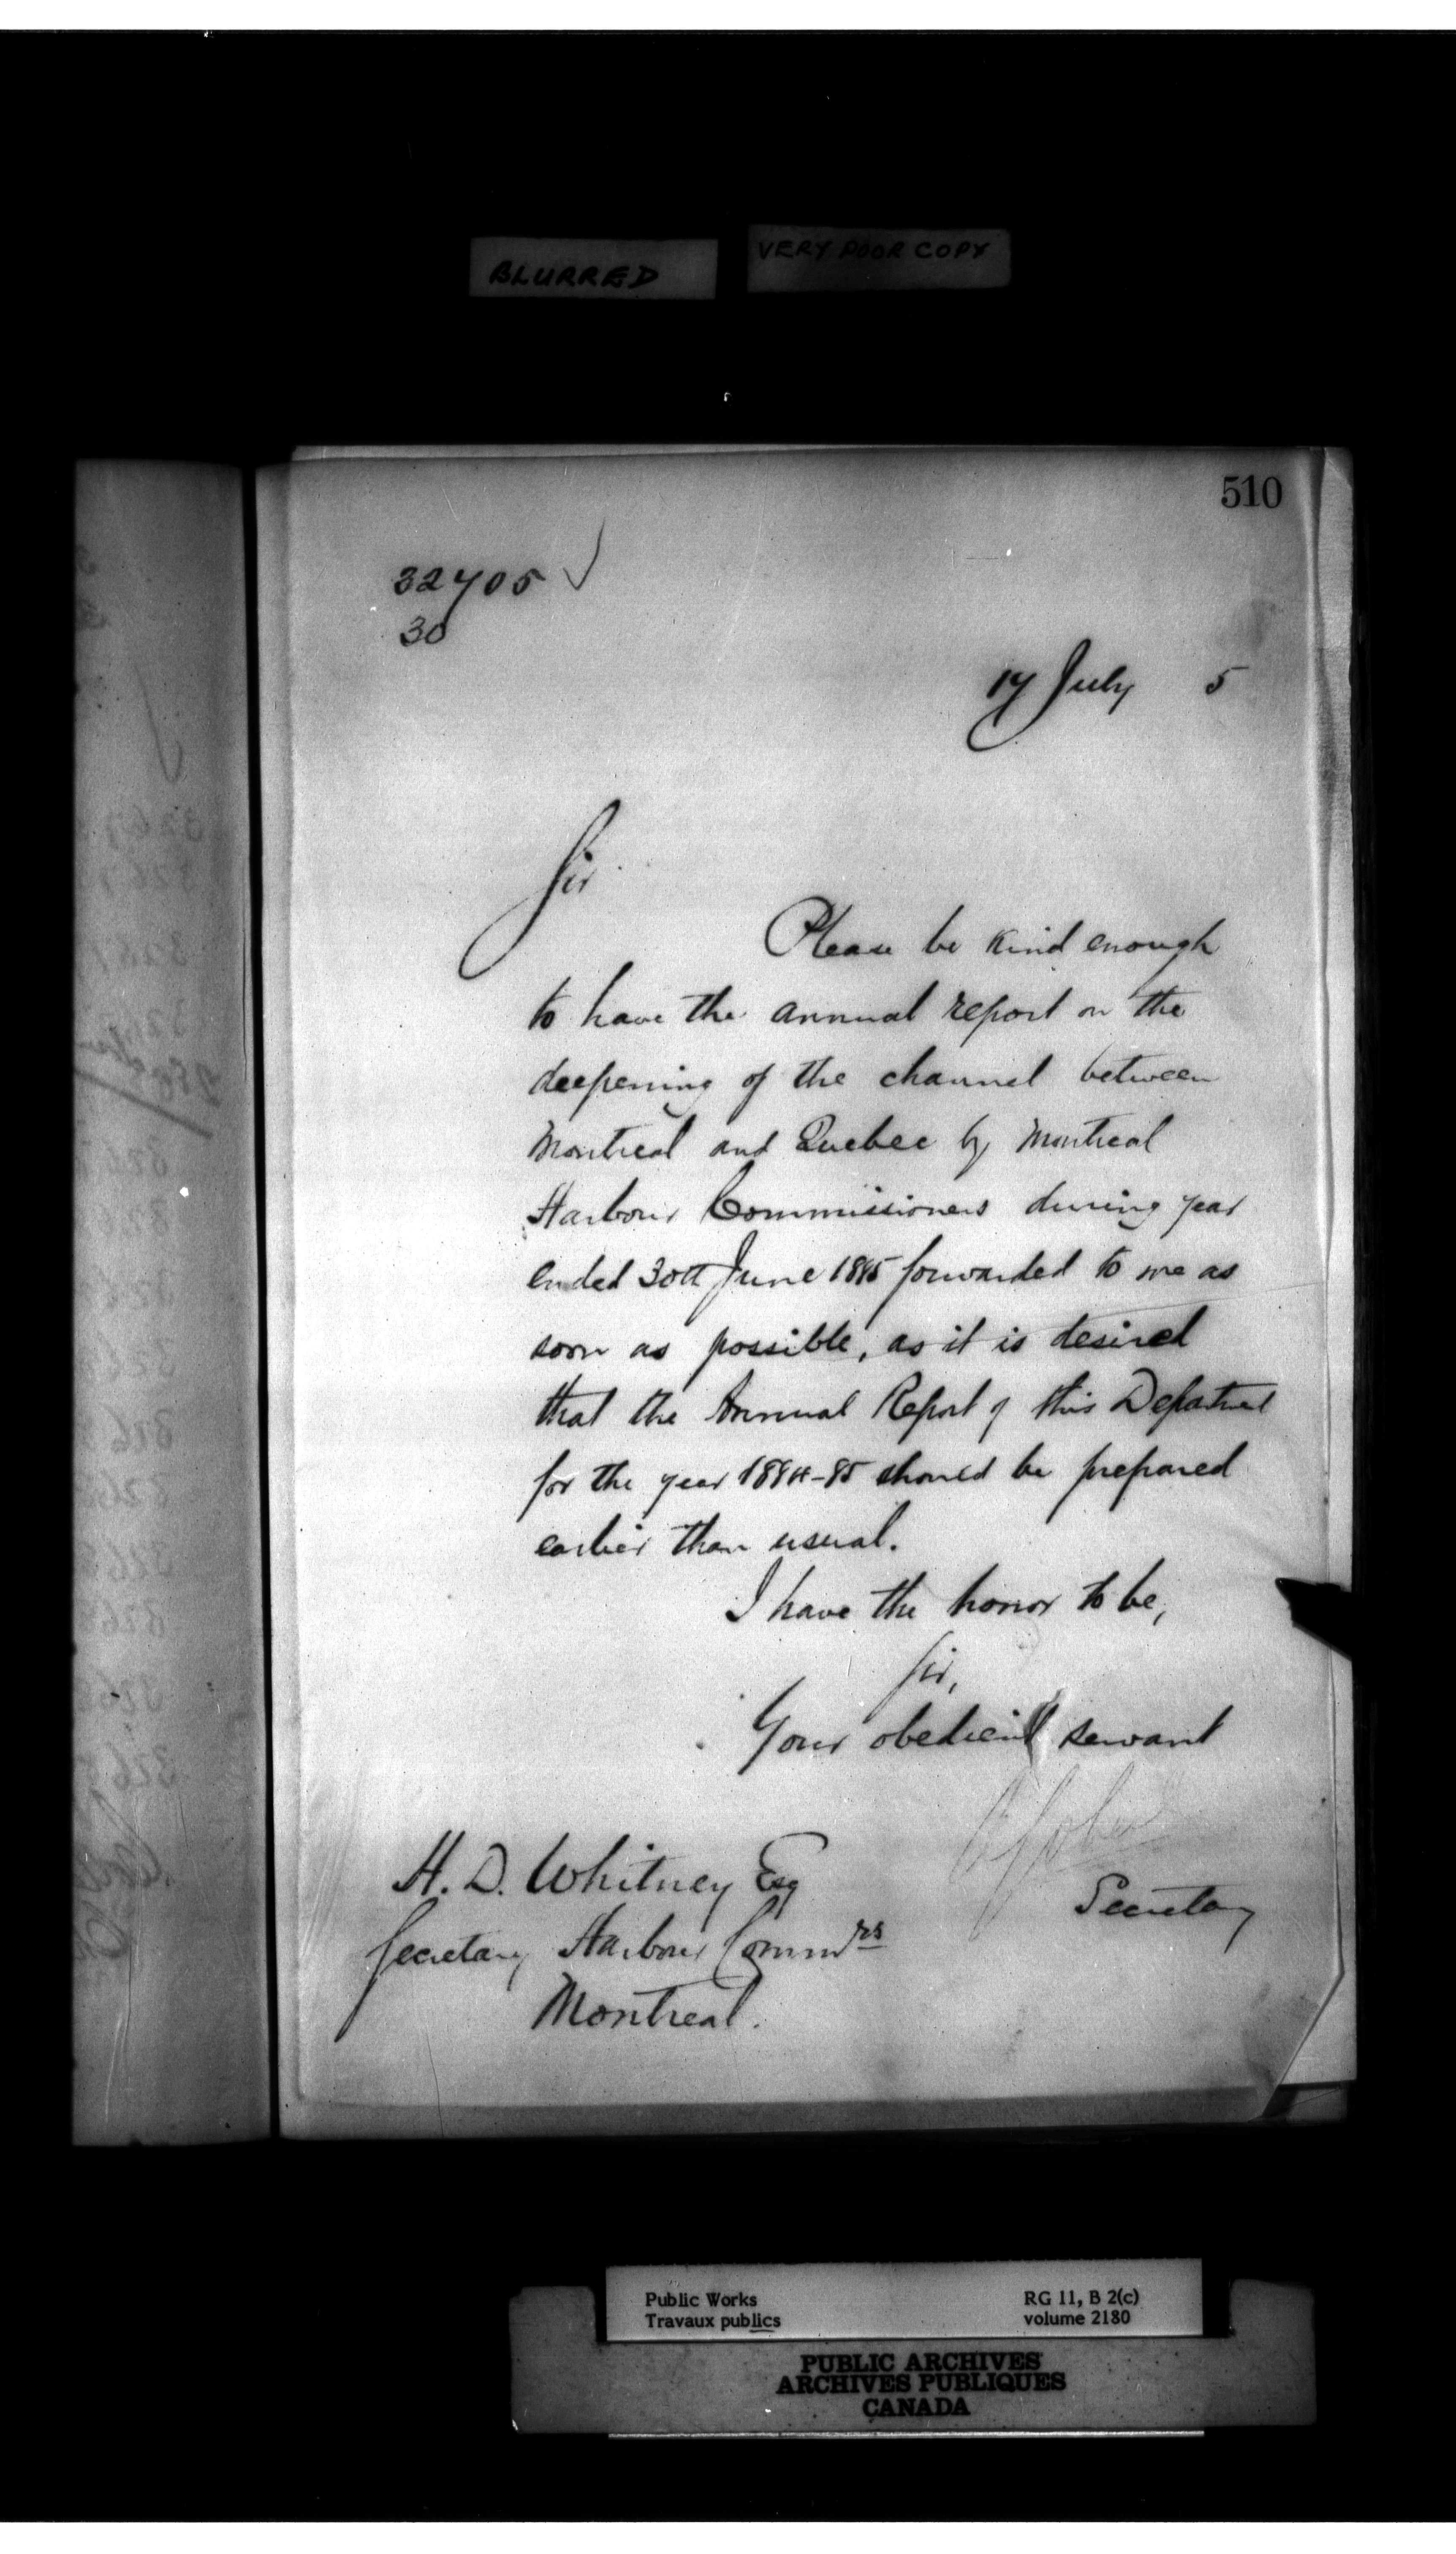 BLURRED
VERY POOR COPY
510
32705
30
17 July 5
Sir
Please be kind enough
to have the annual report on the
deepening of the channel between
Montreal and Quebec by Montreal
Harbour Commissioners during year
ended 30th June 1885 forwarded to me as
soon as possible, as it is desired
that the Annual Report of this Department
for the year 1884-85 should be prepared
earlier than usual.
I have the honor to be,
Sir,
Your obedient servant
Secretary
H. D. Whitney Esq
Secretary Harbour Commrs
Montreal.
Public Works
Travaux publics
RG 11, B 2(c)
volume 2180
PUBLIC ARCHIVES
ARCHIVES PUBLIQUES
CANADA